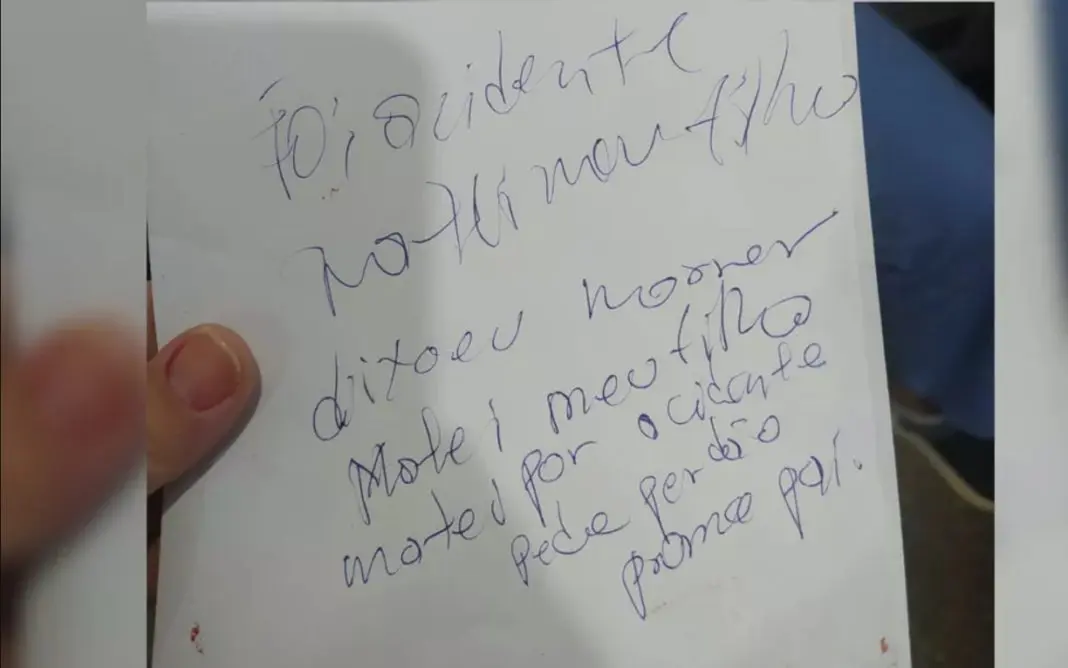 Foi acidente
matei meu filho
dixoeu morrer
Matei meu filho
matei por acidente
pede perdão
prame pai.